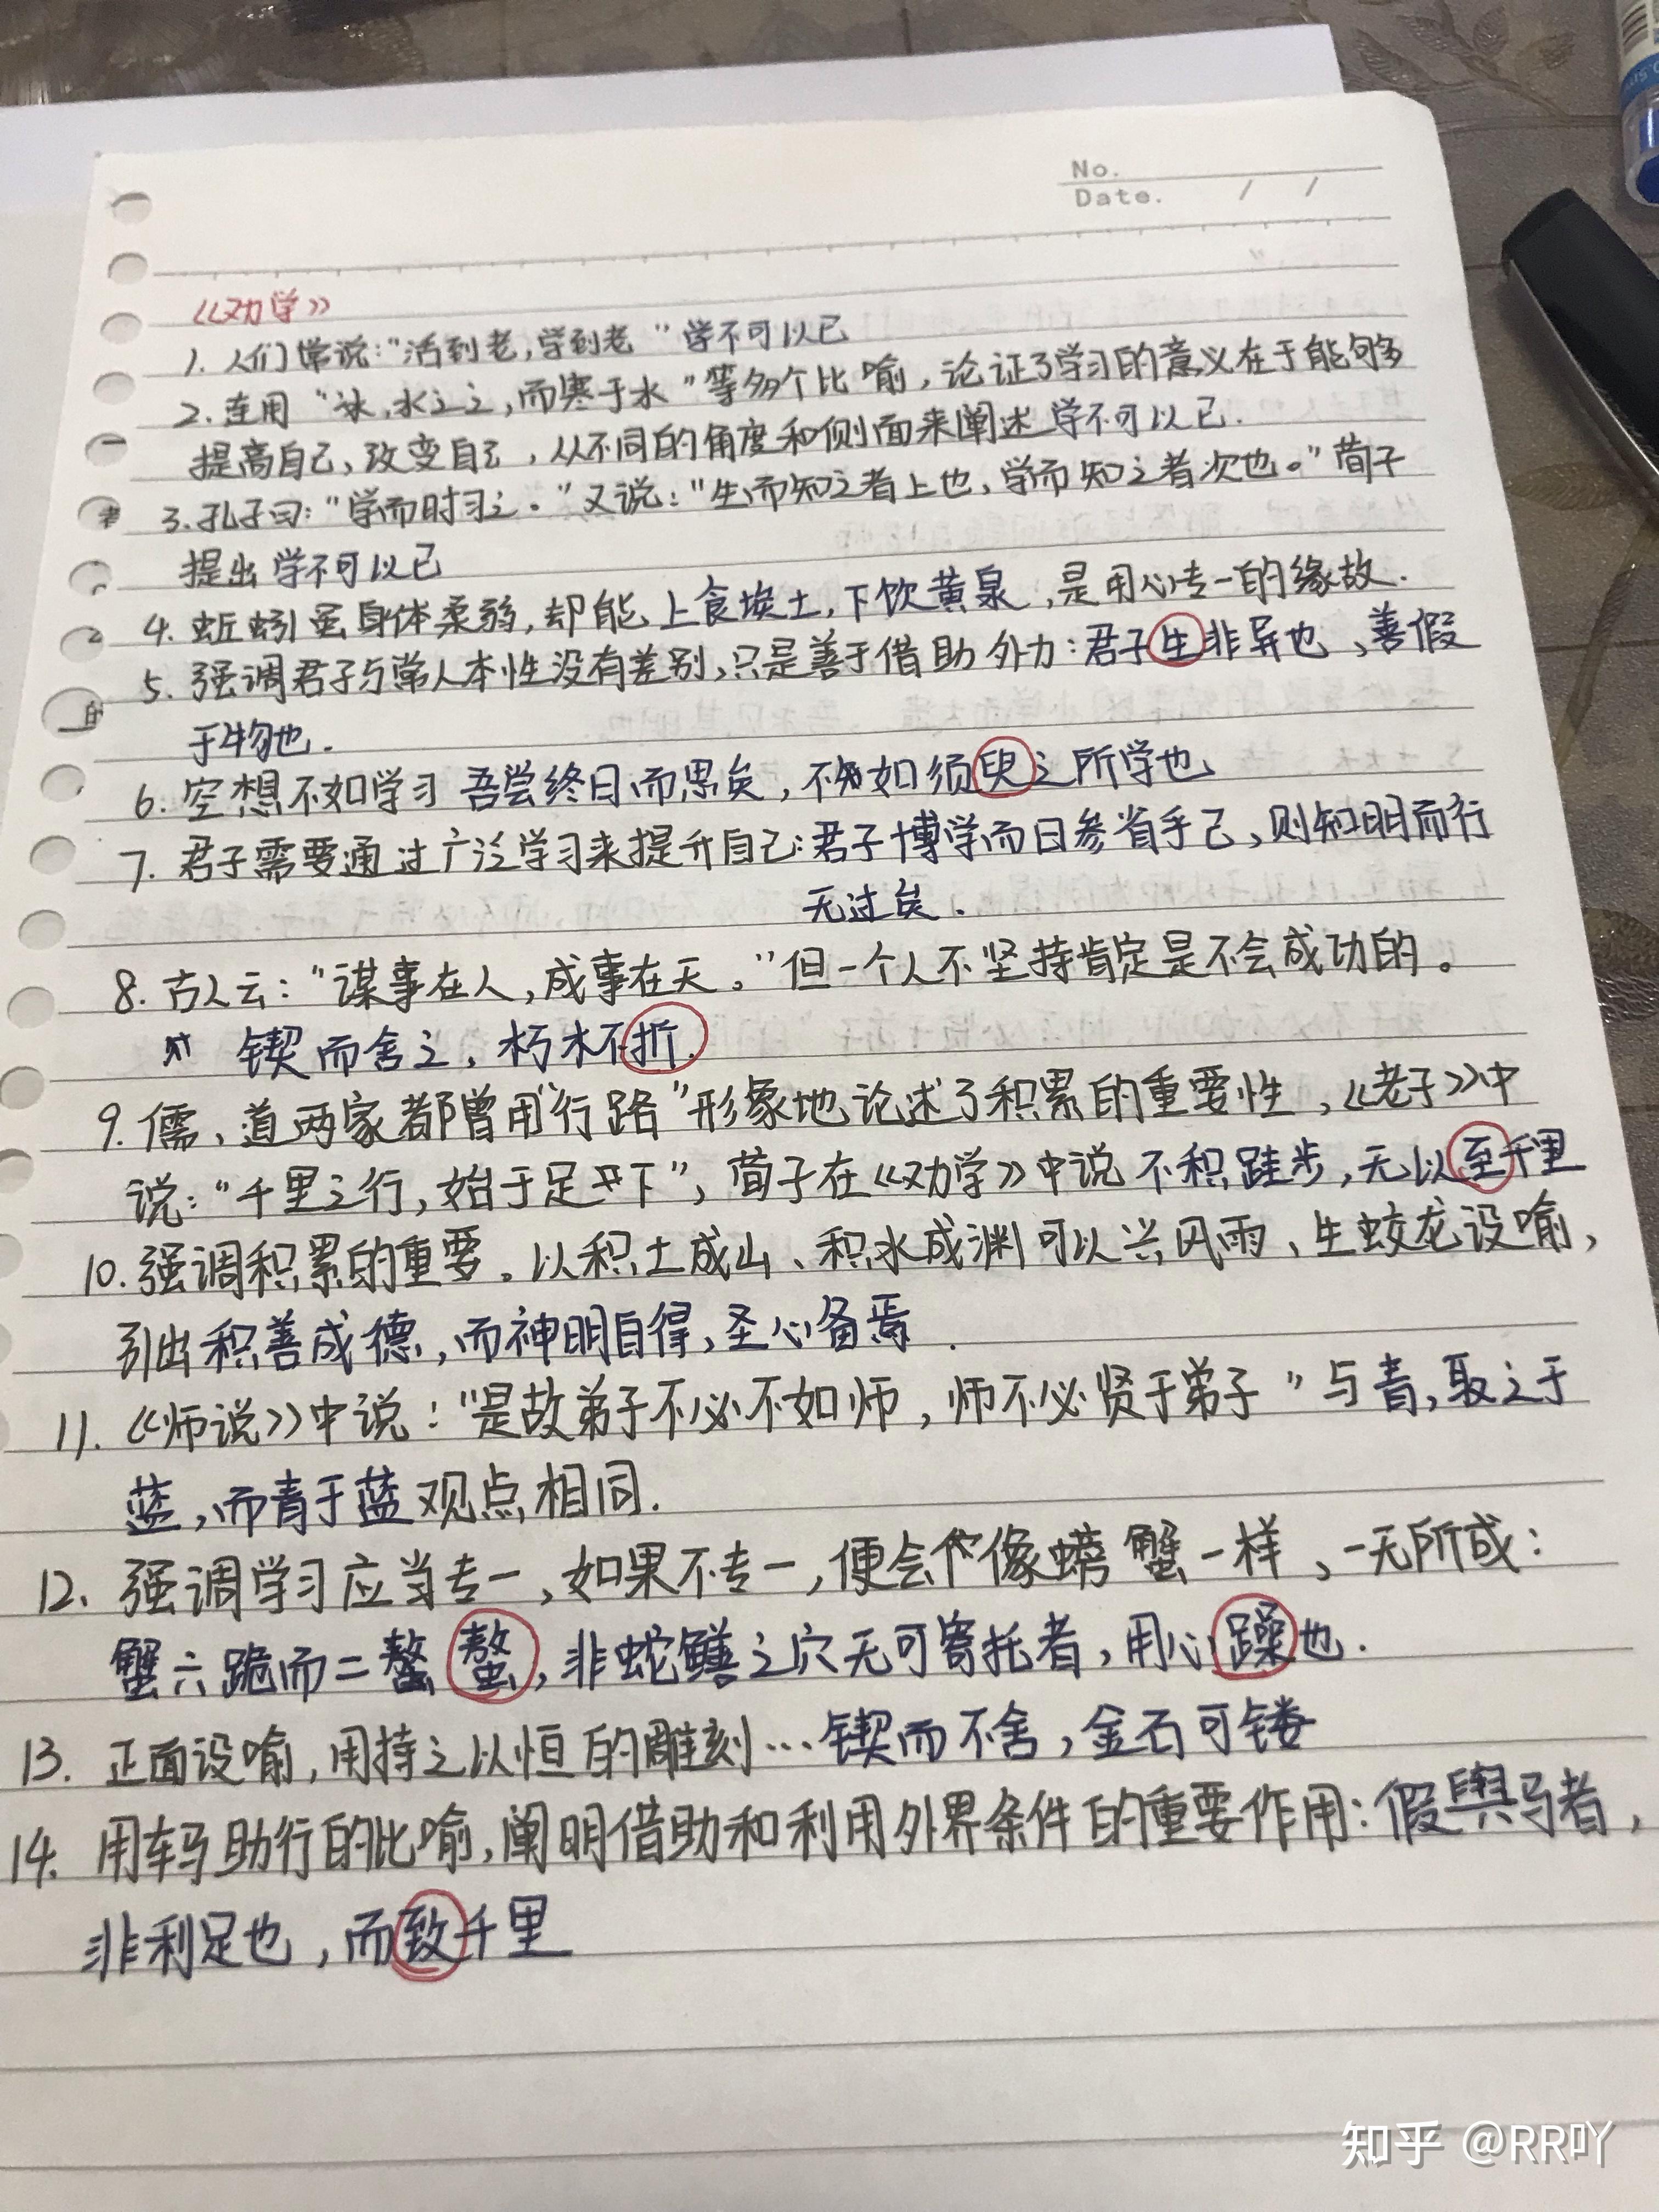 No.
Date. / /
《劝学》
1. 人们常说:"活到老,学到老"学不可以已
2. 连用"冰,水之之,而寒于水"等多个比喻,论证了学习的意义在于能够
提高自己、改变自己,从不同的角度和侧面来阐述 学不可以已.
3. 孔子曰:"学而时习之。"又说:"生而知之者上也,学而知之者次也。"荀子
提出 学不可以已
4. 蚯蚓虽身体柔弱,却能 上食埃土,下饮黄泉,是用心专一的缘故.
5. 强调君子与常人本性没有差别,只是善于借助外力:君子生非异也、善假
于物也.
6. 空想不如学习 吾尝终日而思矣,不如须臾之所学也
7. 君子需要通过广泛学习来提升自己:君子博学而日参省乎己、则知明而行
无过矣.
8. 古人云:"谋事在人,成事在天。"但一个人不坚持肯定是不会成功的。
锲而舍之,朽木不折.
9. 儒、道两家都曾用"行路"形象地论述了积累的重要性,《老子》中
说:"千里之行,始于足下",荀子在《劝学》中说 不积跬步,无以至千里
10. 强调积累的重要。以积土成山、积水成渊可以兴风雨、生蛟龙设喻,
引出积善成德,而神明自得,圣心备焉.
11. 《师说》中说:"是故弟子不必不如师,师不必贤于弟子"与青,取之于
蓝,而青于蓝观点相同.
12. 强调学习应当专一,如果不专一,便会像螃蟹一样、一无所成:
蟹六跪而二螯 螯,非蛇鳝之穴无可寄托者,用心躁也.
13. 正面设喻,用持之以恒的雕刻…锲而不舍,金石可镂
14. 用车马助行的比喻,阐明借助和利用外界条件的重要作用:假舆马者,
非利足也,而致千里
知乎 @RR吖